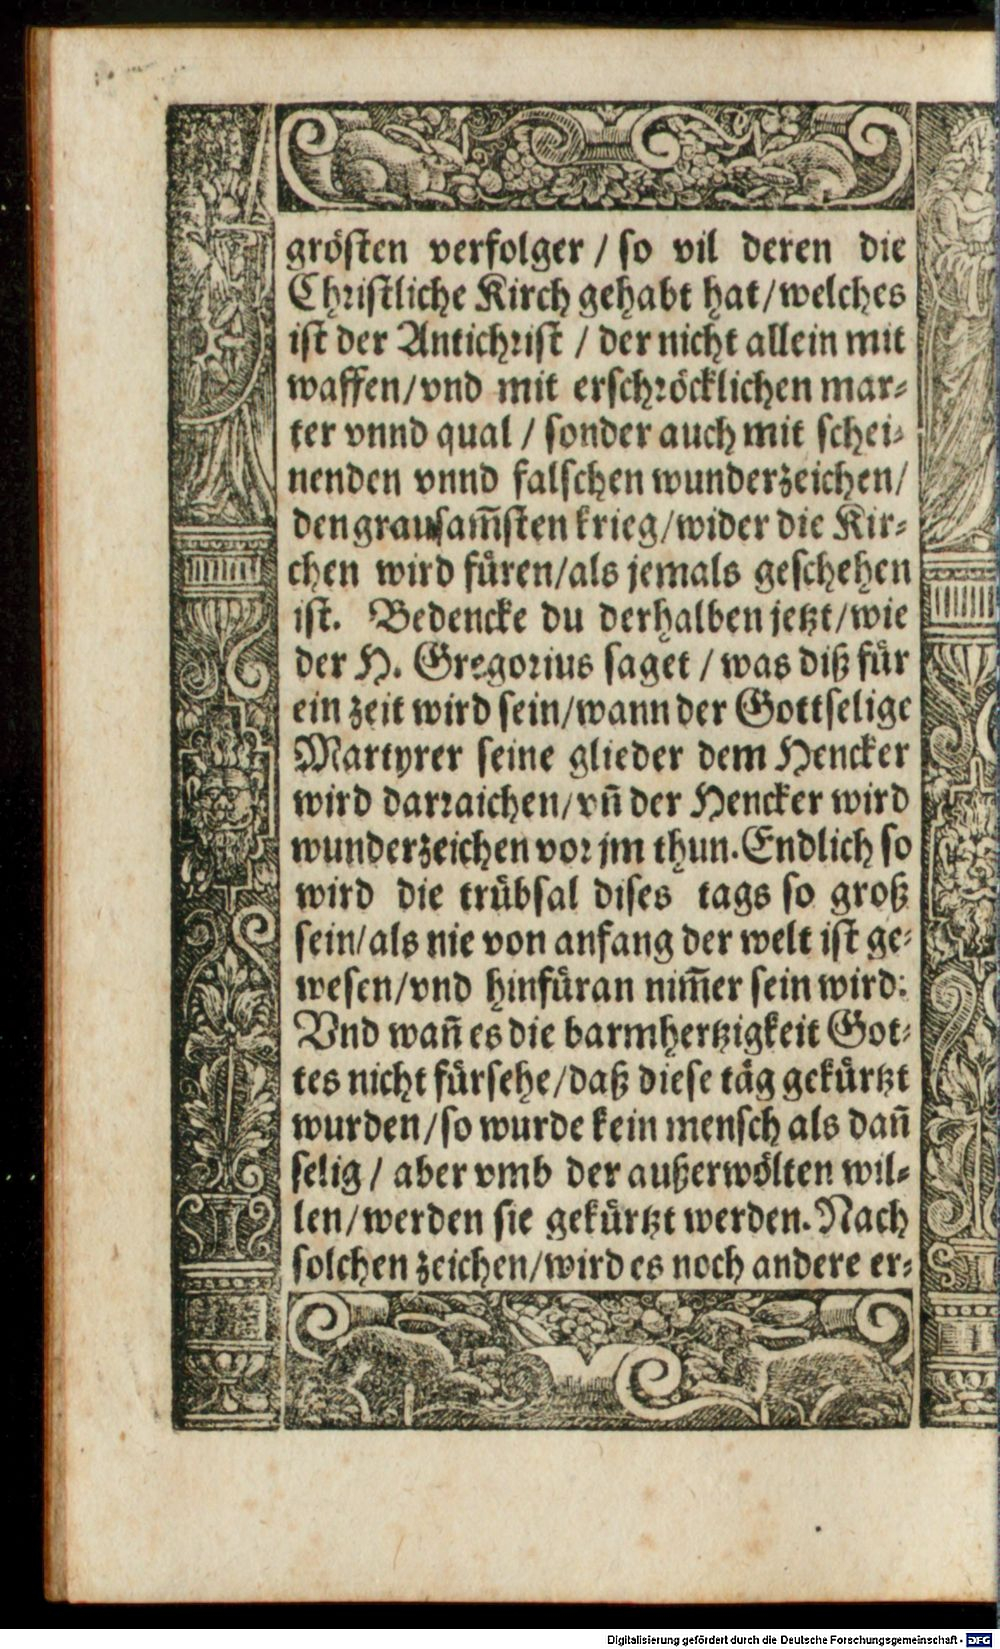 grösten verfolger / so vil deren die
Christliche Kirch gehabt hat/welches
ist der Antichrist / der nicht allein mit
waffen/vnd mit erschröcklichen mar-
ter vnnd qual / sonder auch mit schei-
nenden vnnd falschen wunderzeichen/
den grausam̄sten krieg/wider die Kir-
chen wird füren/als jemals geschehen
ist. Bedencke du derhalben jetzt/wie
der H. Gregorius saget / was diß für
ein zeit wird sein/wann der Gottselige
Martyrer seine glieder dem Hencker
wird darraichen/vn̄ der Hencker wird
wunderzeichen vor jm thun. Endlich so
wird die trübsal dises tags so groß
sein/als nie von anfang der welt ist ge-
wesen/vnd hinfüran nim̄er sein wird:
Vnd wan̄ es die barmhertzigkeit Got-
tes nicht fürsehe/daß diese täg gekürtzt
wurden/so wurde kein mensch als dan̄
selig / aber vmb der außerwölten wil-
len/werden sie gekürtzt werden. Nach
solchen zeichen/wird es noch andere er-
Digitalisierung gefördert durch die Deutsche Forschungsgemeinschaft - DFG